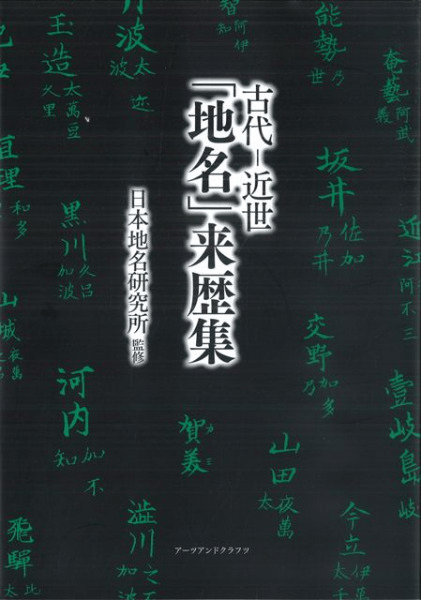 古代－近世
「地名」来歴集
日本地名研究所 監修
アーツアンドクラフツ
奄藝
阿武
義
近江
阿不三
壹岐島
岐
能勢
乃
世
坂井
佐加
乃井
交野
加多
乃
今立
伊万
太千
智
阿伊
知
山田
夜萬
太
賀美
カミ
丹波
太迩
波
澁川
之不
加波
玉造
太萬豆
久里
黒川
久呂
加波
河内
加不
知
亘理
和多
山城
夜萬
之呂
飛驒
比
太